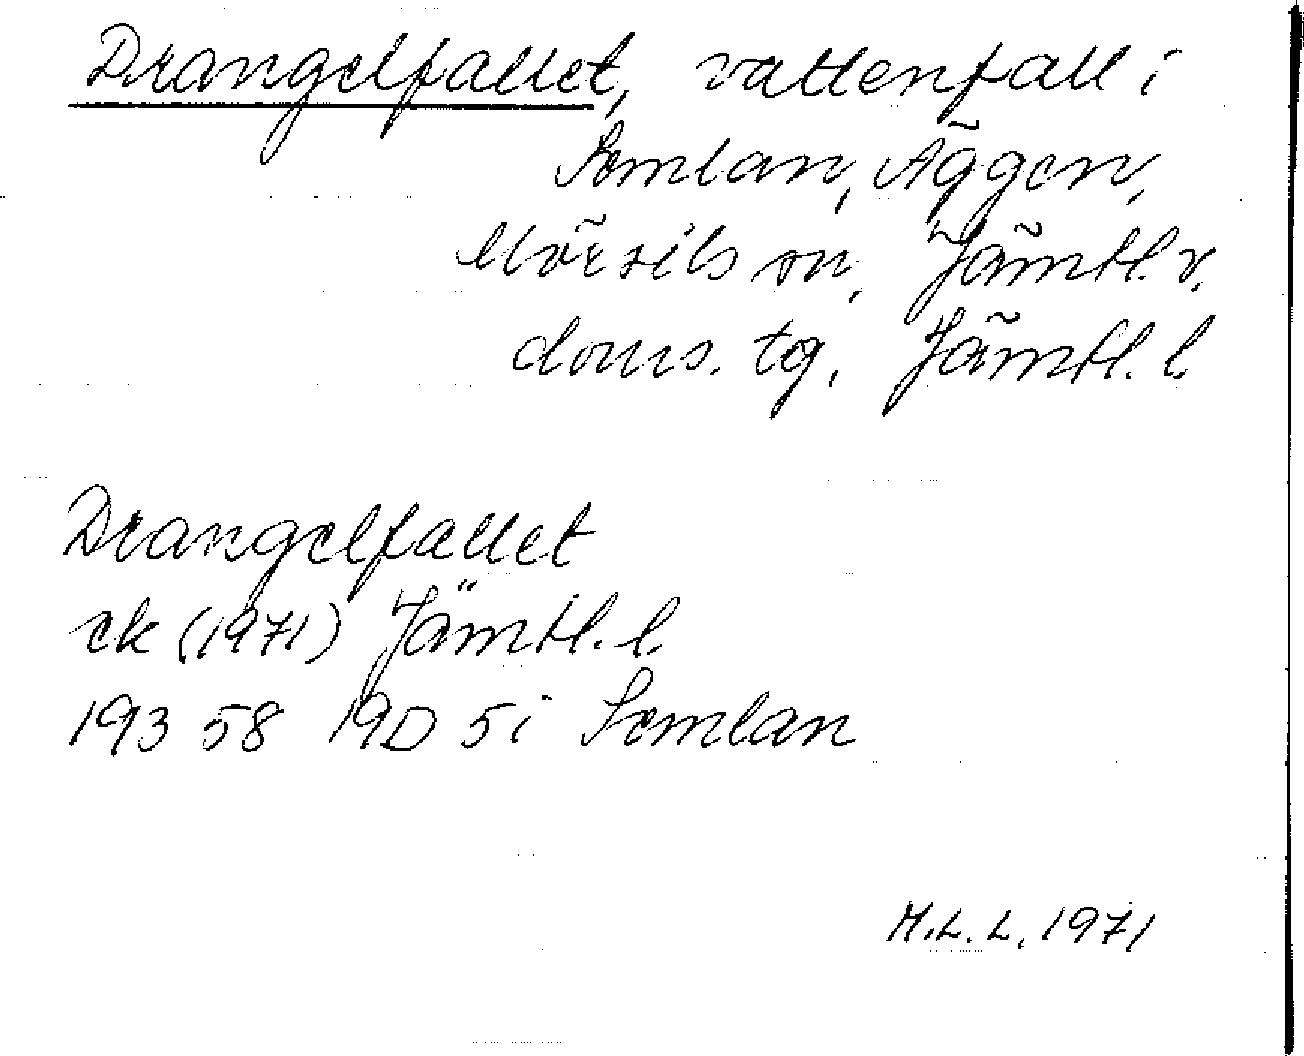 Drangelfallet, vattenfall i
Semlan, Äggen,
Mörsils sn, Jämtl. v.
doms. tg, Jämtl. l.
Drangelfallet
ek (1971) Jämtl. l.
193 58 19D 5i Semlan
M.L.L. 1971